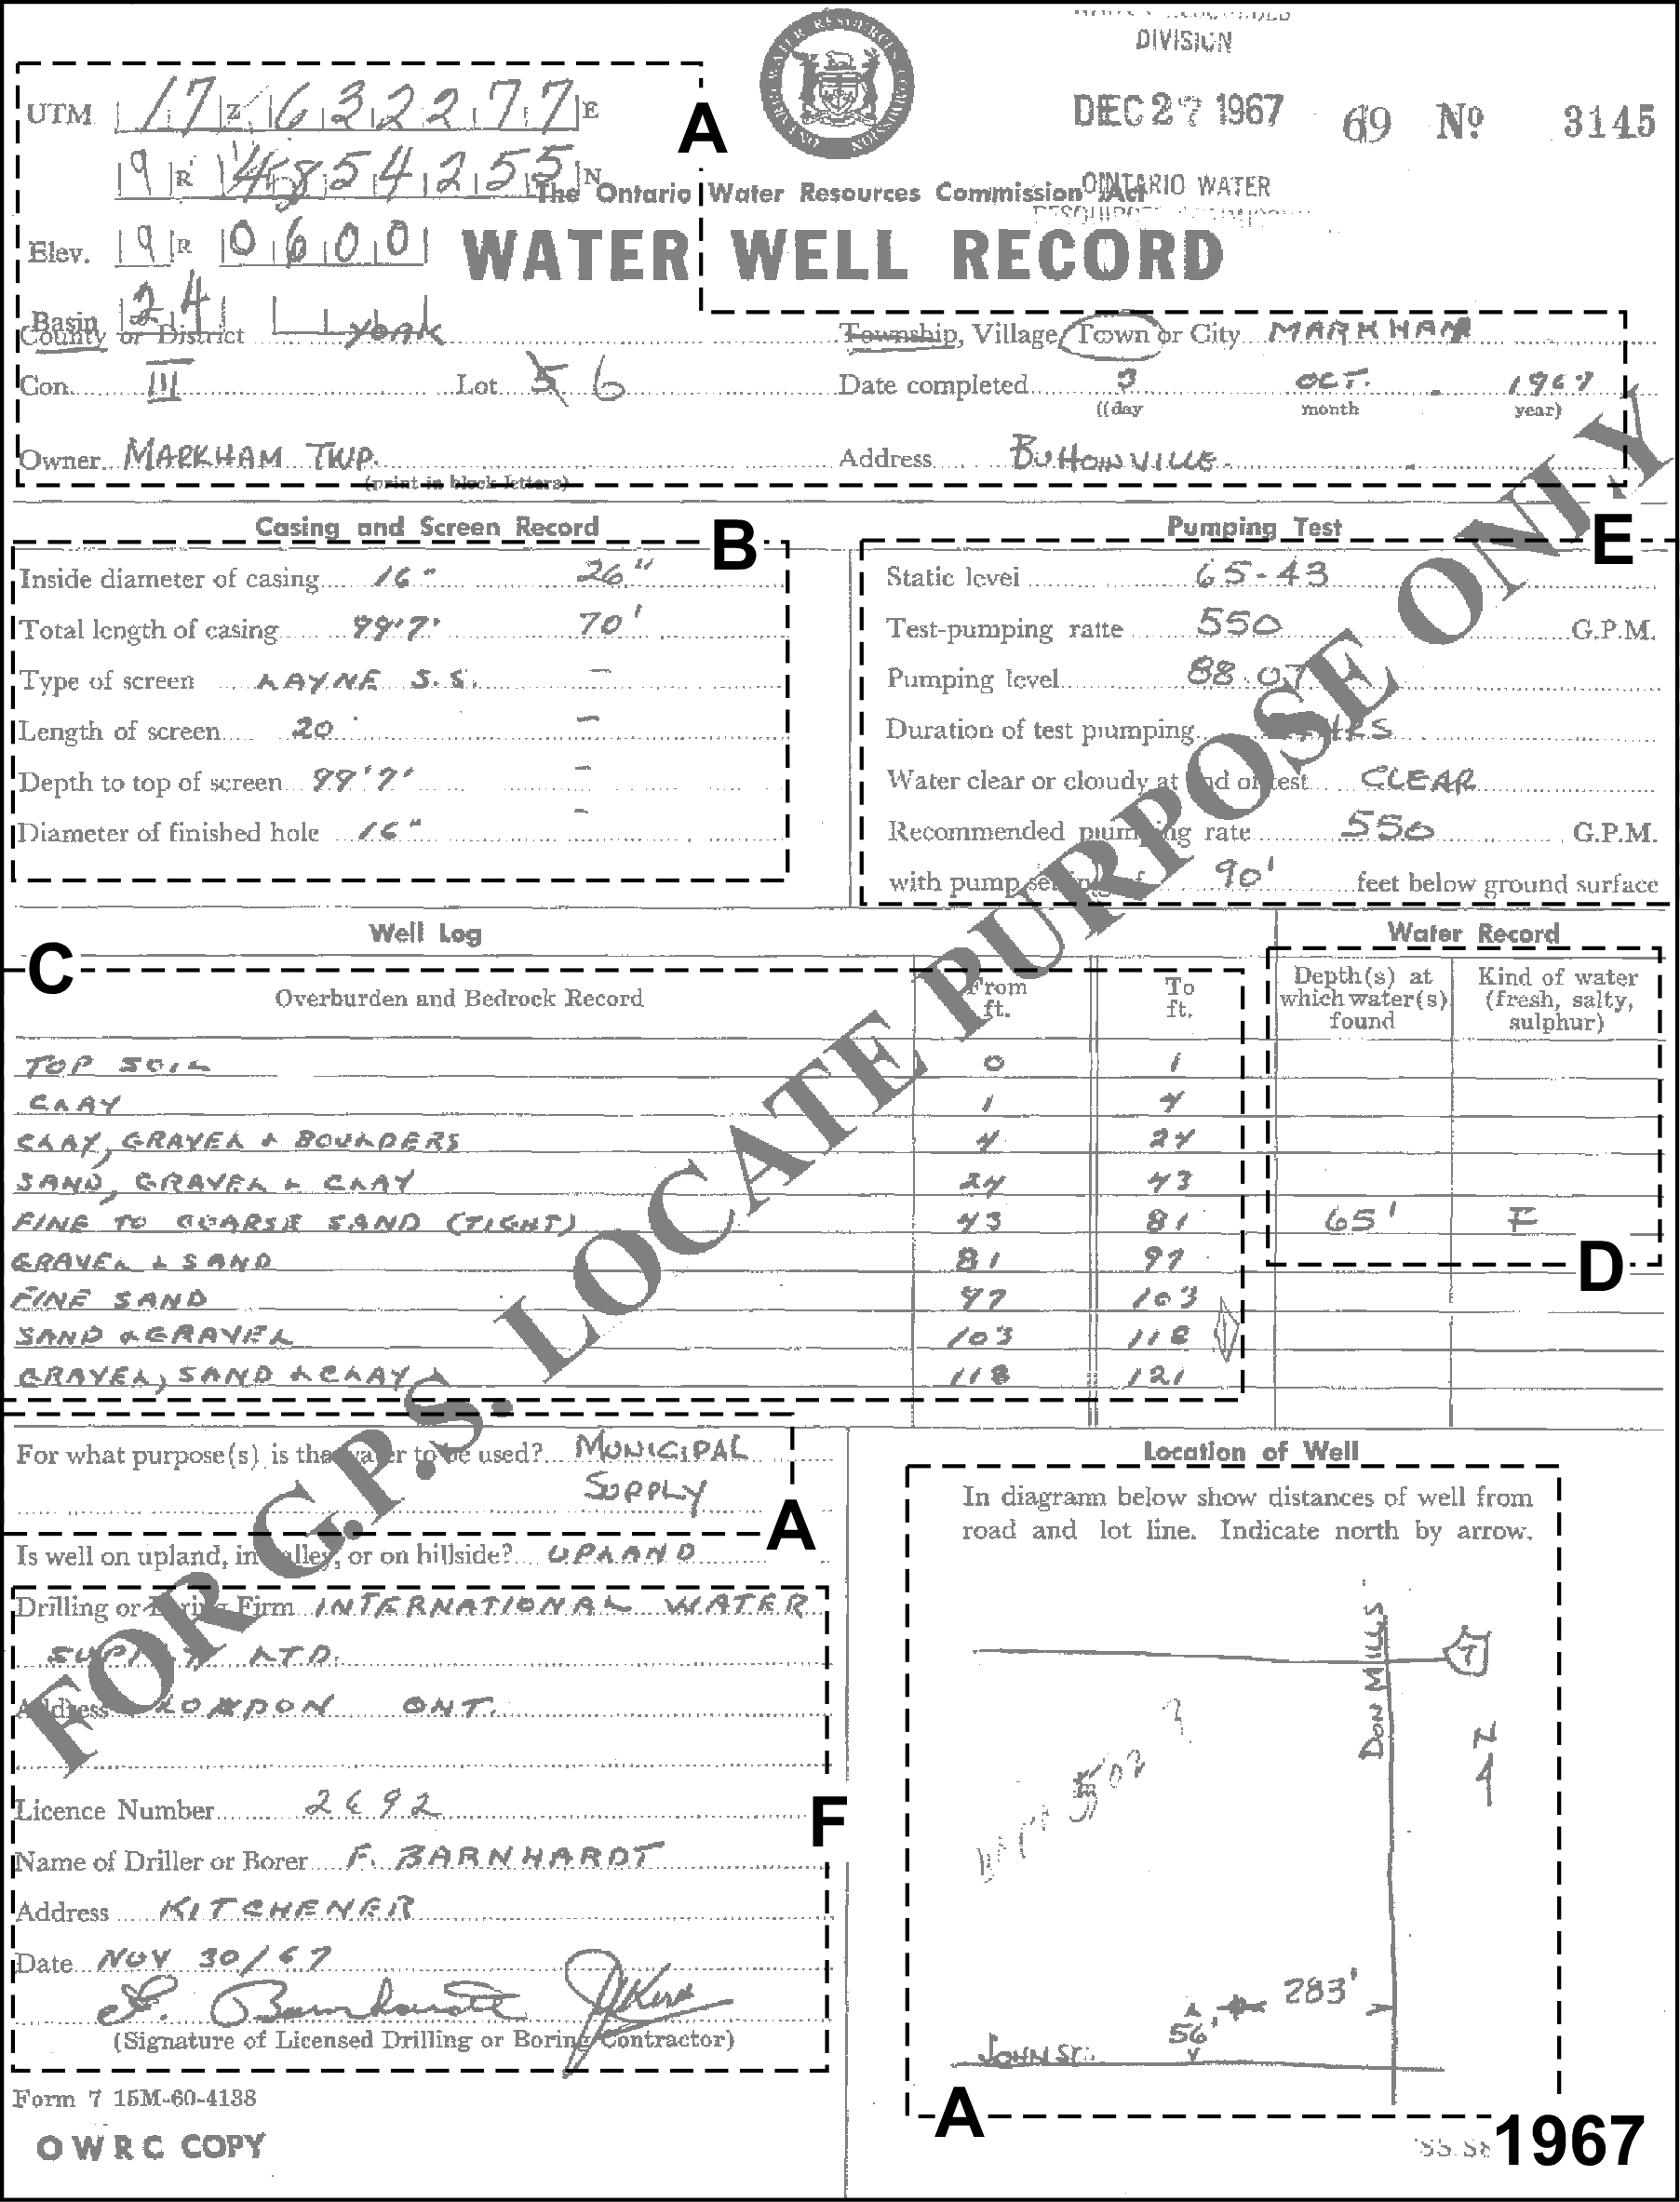 DIVISION
UTM 17 Z 632277 E
A
DEC 27 1967 69 Nº 3145
9 R 4854255 N
The Ontario Water Resources Commission Act
ONTARIO WATER
Elev. 9 R 0600
WATER WELL RECORD
Basin 24
County or District YORK Township, Village, Town or City MARKHAM
Con. III Lot 5 6 Date completed 3 OCT. 1967
(day month year)
Owner MARKHAM TWP. Address BUTTONVILLE
(print in block letters)
Casing and Screen Record B
Inside diameter of casing 16" 26"
Total length of casing 99'7" 70'
Type of screen LAYNE S.S. –
Length of screen 20' –
Depth to top of screen 99'7" –
Diameter of finished hole 16" –
Pumping Test E
Static level 65-43
Test-pumping rate 550 G.P.M.
Pumping level 88.07
Duration of test pumping HRS
Water clear or cloudy at end of test CLEAR
Recommended pumping rate 550 G.P.M.
with pump setting of 90' feet below ground surface
FOR G.P.S. LOCATE PURPOSE ONLY
Well Log
C
Overburden and Bedrock Record From ft. To ft.
TOP SOIL 0 1
CLAY 1 4
CLAY, GRAVEL & BOULDERS 4 24
SAND, GRAVEL & CLAY 24 43
FINE TO COARSE SAND (TIGHT) 43 81
GRAVEL & SAND 81 97
FINE SAND 97 103
SAND & GRAVEL 103 118
GRAVEL, SAND & CLAY 118 121
Water Record
Depth(s) at which water(s) found
Kind of water (fresh, salty, sulphur)
65' F
D
For what purpose(s) is the water to be used? MUNICIPAL
SUPPLY
A
Is well on upland, in valley, or on hillside? UPLAND
Drilling or Boring Firm INTERNATIONAL WATER
SUPPLY LTD.
Address LONDON ONT.
Licence Number 2692
F
Name of Driller or Borer F. BARNHARDT
Address KITCHENER
Date NOV 30/67
F. Barnhardt
(Signature of Licensed Drilling or Boring Contractor)
Form 7 15M-60-4138
OWRC COPY
Location of Well
In diagram below show distances of well from
road and lot line. Indicate north by arrow.
DON MILLS
7
N
283'
56'
JOHN ST.
A
1967